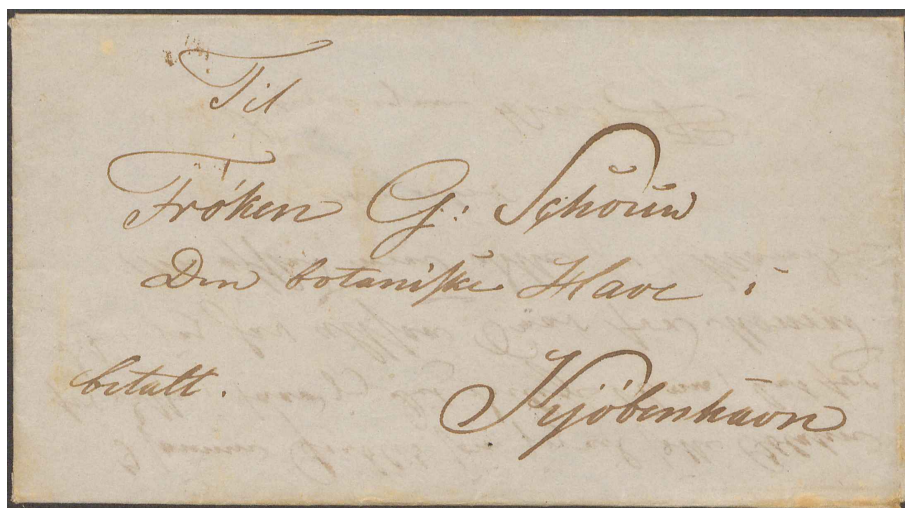 Til
Frøken G: Schouw
Den botaniske Have i
betalt.
Kjøbenhavn